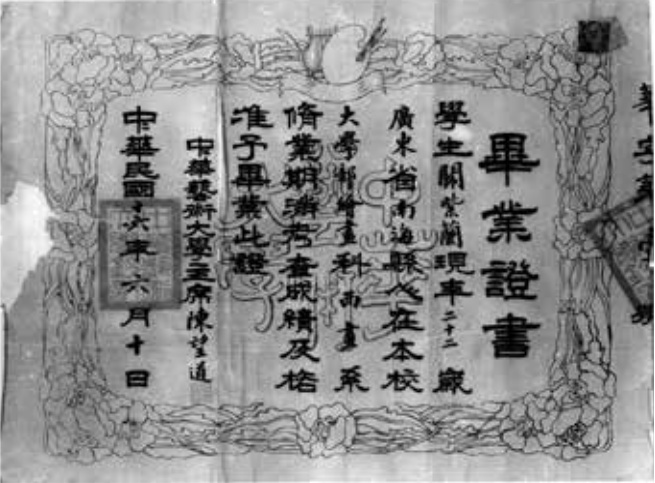 畢業證書
學生關紫蘭現年二十二歲
廣東省南海縣人在本校
大學部繪畫科西畫系
脩業期滿考查成績及格
准予畢業此證
中華藝術大學主席陳望道
中華民國十六年六月十日